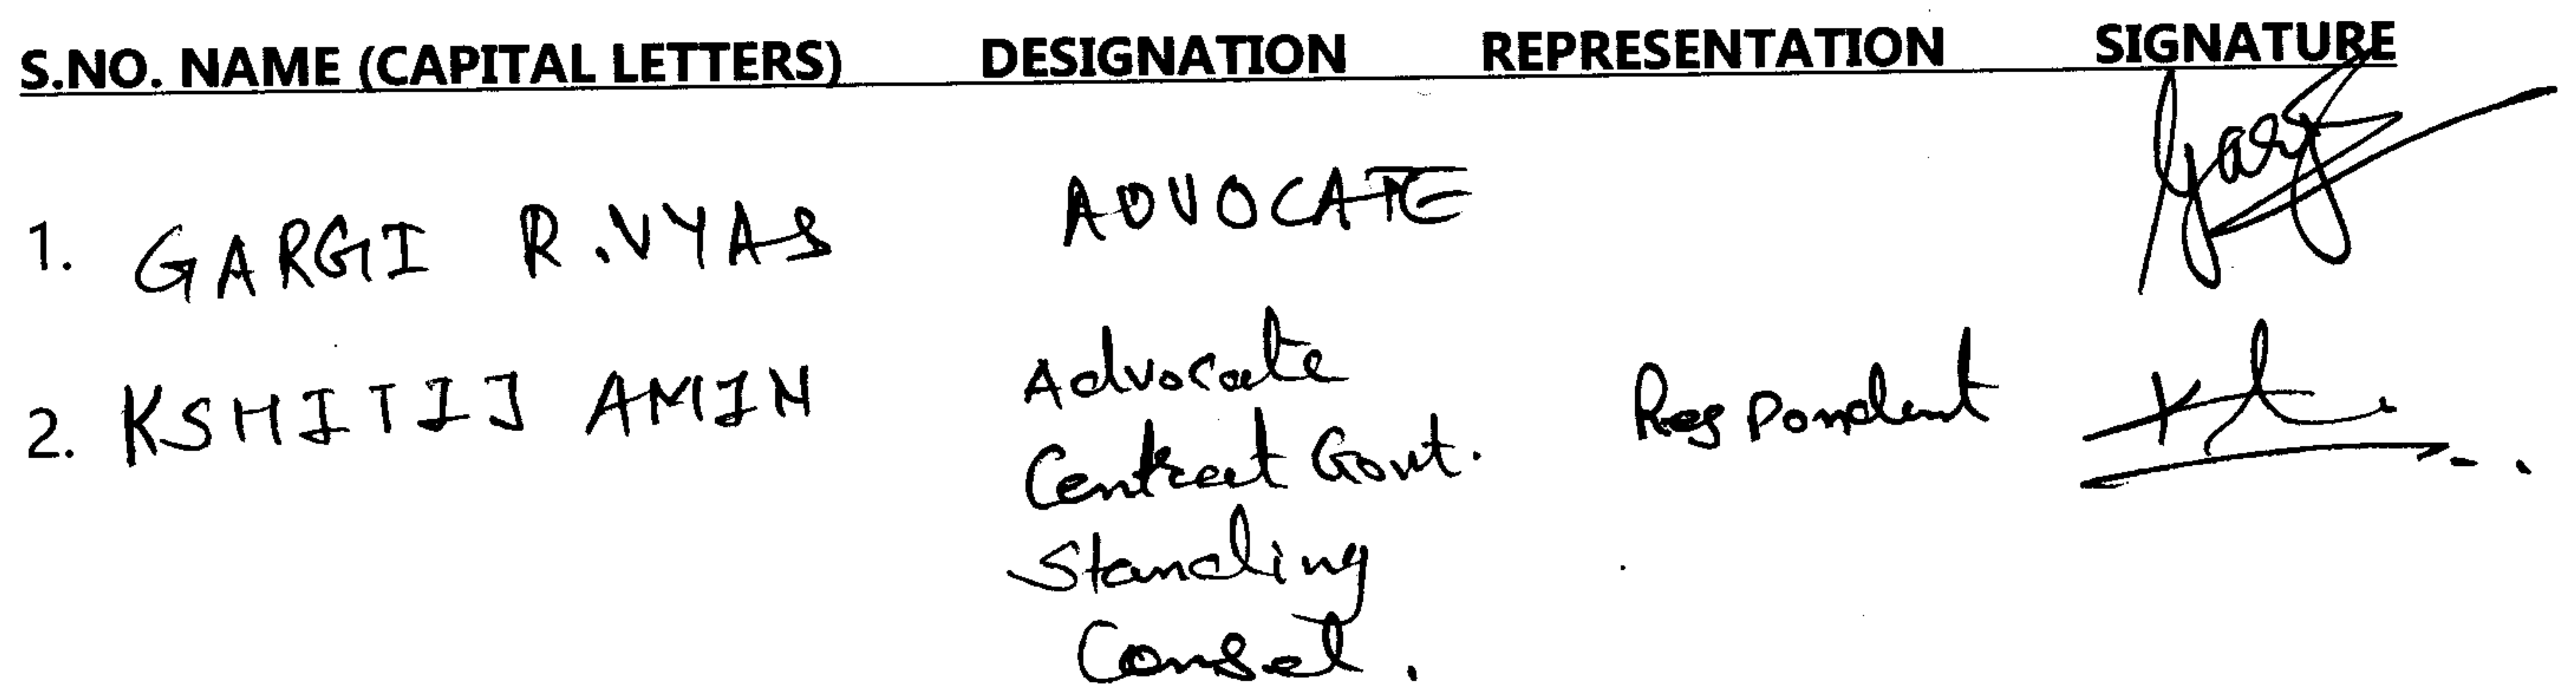 S.NO. NAME (CAPITAL LETTERS) DESIGNATION REPRESENTATION SIGNATURE
1. GARGI R. VYAS ADVOCATE
2. KSHITIJ AMIN Advocate Respondent
Central Govt.
Standing
Consel.